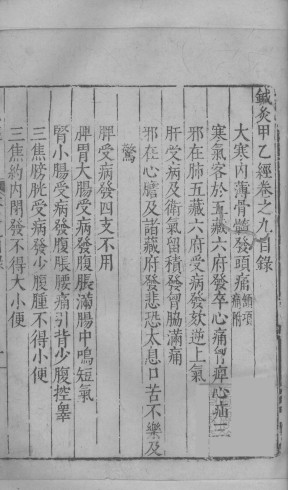 鍼灸甲乙經卷之九目錄
大寒內薄骨髓發頭痛項痛附
寒氣客於五藏六府發卒心痛胷痺心疝三
邪在肺五藏六府受病發欬逆上氣
肝受病及衛氣留積發胷脇滿痛
邪在心膽及諸藏府發悲恐太息口苦不樂及
驚
脾受病發四支不用
脾胃大腸受病發腹脹滿腸中鳴短氣
腎小腸受病發腹脹腰痛引背少腹控睾
三焦膀胱受病發少腹腫不得小便
三焦約內閉發不得大小便